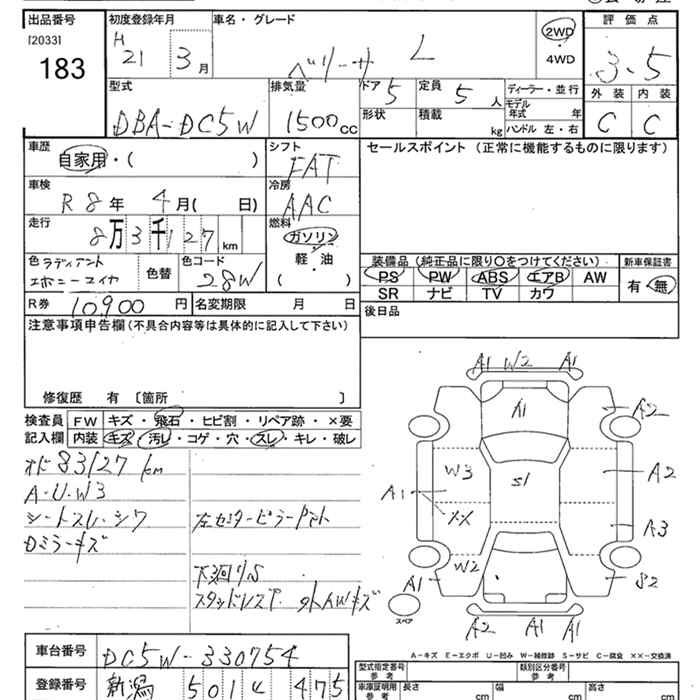 出品番号
[2033]
183
初度登録年月
H 21 3 月
車名・グレード
ベリーサ L
2WD
4WD
評価点
3.5
外装 内装
C C
型式
DBA-DC5W
排気量
1500 cc
ドア 5
定員 5 人
形状
積載 kg
ディーラー・並行
モデル年式 年
ハンドル 左・右
車歴
自家用・( )
シフト
FAT
セールスポイント (正常に機能するものに限ります)
車検
R 8 年 4 月( 日)
冷房
AAC
走行
8万3千127 km
燃料
ガソリン
軽・油
( )
色 ラディアント
エボニーマイカ
色替
色コード
28W
装備品 (純正品に限り〇をつけてください)
PS PW ABS エアB AW
SR ナビ TV カワ
新車保証書
有・無
R券 10,900 円
名変期限 月 日
後日品
注意事項申告欄 (不具合内容等は具体的に記入して下さい)
修復歴 有 〔箇所 〕
検査員
記入欄
FW キズ・飛石・ヒビ割・リペア跡・×要
内装 キズ・汚レ・コゲ・穴・スレ・キレ・破レ
オド 83127 km
A・U・W3
シートスレ・シワ
Dミラーキズ
左センターピラー
下廻りS
スタッドレス
A1 W2 A1
A1
A2
W3
S1
A2
A1
XX
A3
W2
A1
S2
スペア
A2 A1 A1
A-キズ E-エクボ U-凹み W-補修跡 S-サビ C-腐食 XX-交換済
車台番号
DC5W-330754
登録番号
新潟 501 475
型式指定番号
参考
類別区分番号
参考
車庫証明用
参考
長さ cm
幅 cm
高さ cm